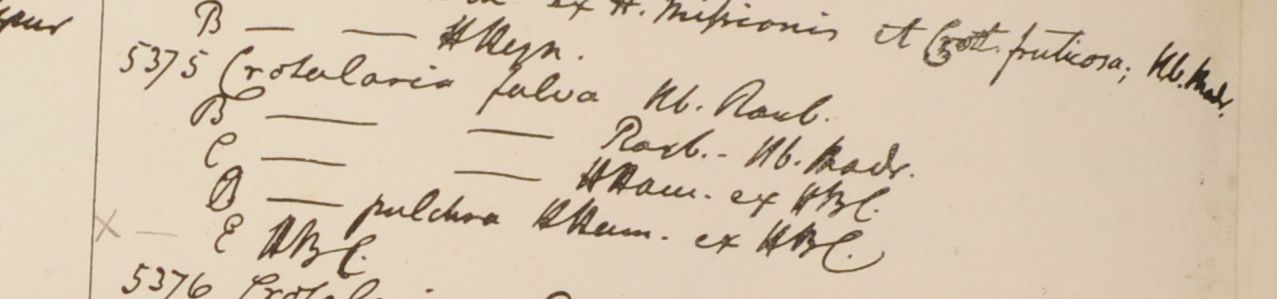 ex H. Missionis et Crott. fruticosa; Hb. Madr.
B — — HHeyn.
5375 Crotalaria fulva Hb. Roxb.
B — — Roxb. - Hb. Madr.
C — — HHam. ex HBC.
D — pulchra HHam. ex HBC.
E HBC.
5376 Crotalaria